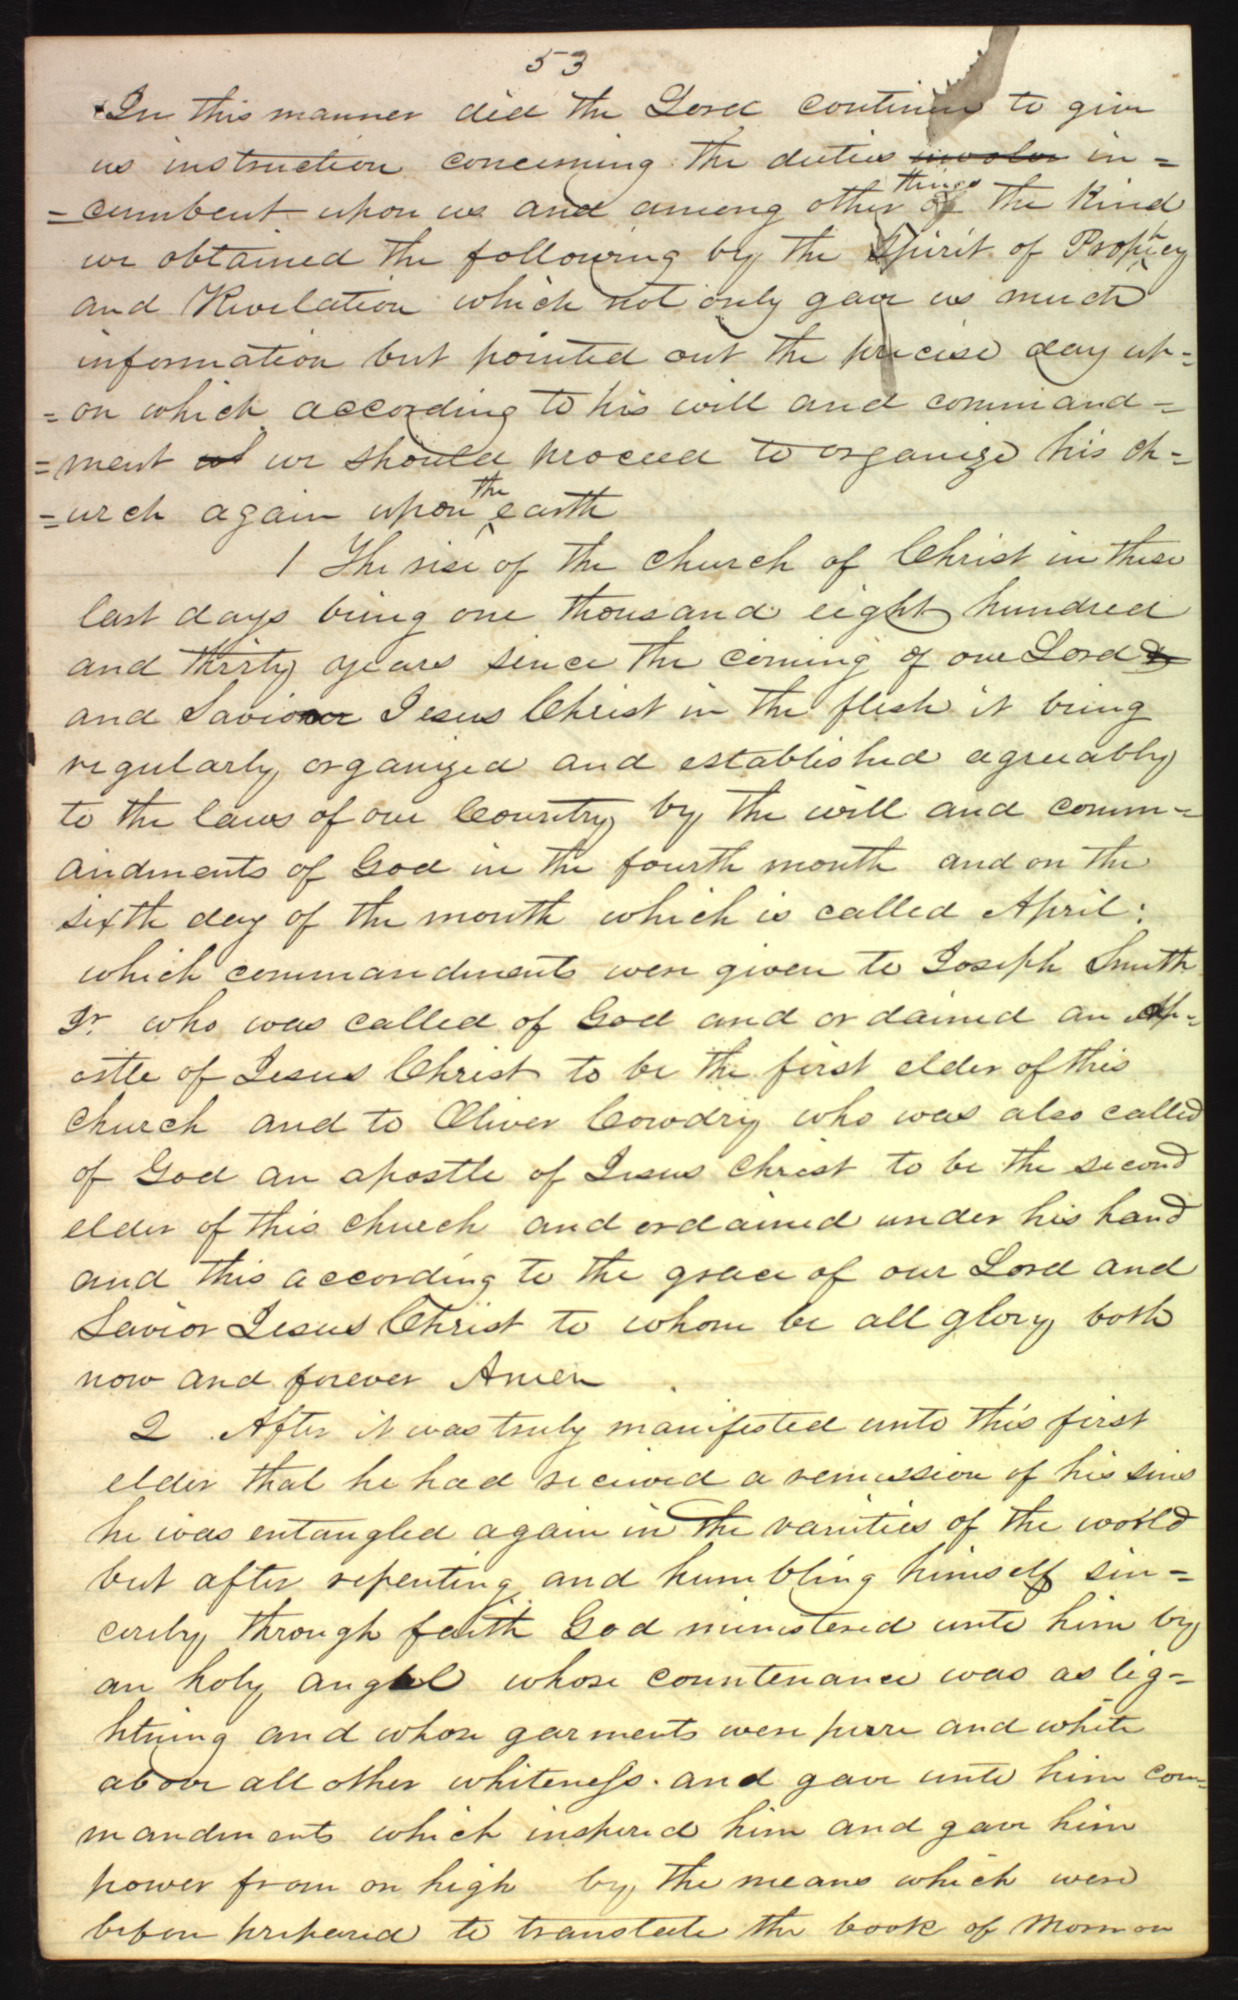 53
In this manner did the Lord continue to give
us instruction concerning the duties involov in=
=cumbent upon us and among other things of the kind
we obtained the following by the Spirit of Prophecy
and Revelation which not only gave us much
information but pointed out the precise day up=
=on which according to his will and command=
=ment we should proceed to organize his ch=
=urch again upon the earth
1 The rise of the church of Christ in these
last days being one thousand eight hundred
and thirty years since the coming of our Lord &
and Savior Jesus Christ in the flesh it being
regularly organized and established agreeably
to the laws of our Country by the will and comm=
andments of God in the fourth month and on the
sixth day of the month which is called April:
which commandments were given to Joseph Smith
Jr. who was called of God and ordained an Ap=
ostle of Jesus Christ to be the first elder of this
church and to Oliver Cowdry who was also called
of God an apostle of Jesus Christ to be the second
elder of this church and ordained under his hand
and this according to the grace of our Lord and
Savior Jesus Christ to whom be all glory both
now and forever Amen
2 After it was truly manifested unto this first
elder that he had received a remission of his sins
he was entangled again in the vanities of the world
but after repenting and humbling himself sin=
cerely through faith God ministered unto him by
an holy angel whose countenance was as lig=
htning and whose garments were pure and white
above all other whiteness. and gave unto him com=
mandments which inspired him and gave him
power from on high by the means which were
before prepared to translate the book of Mormon